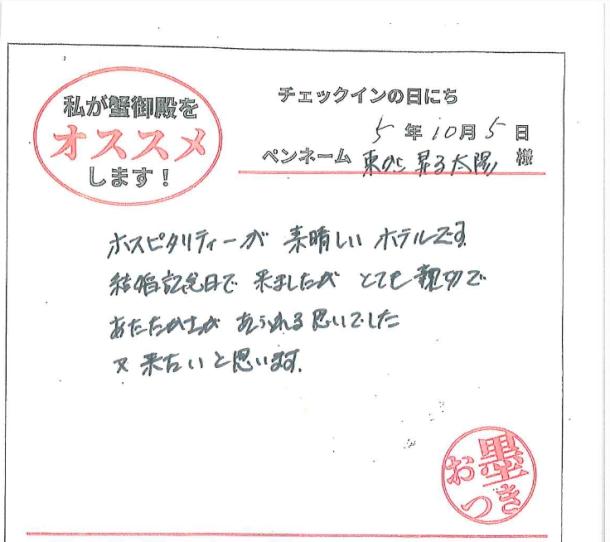 私が蟹御殿を
オススメ
します！
チェックインの日にち
5年10月5日
ペンネーム 東から昇る太陽 様
ホスピタリティーが 素晴しい ホテルです。
結婚記念日で 来ましたが とても親切で
あたたかさが あふれる思いでした
又来たいと思います。
お墨つき